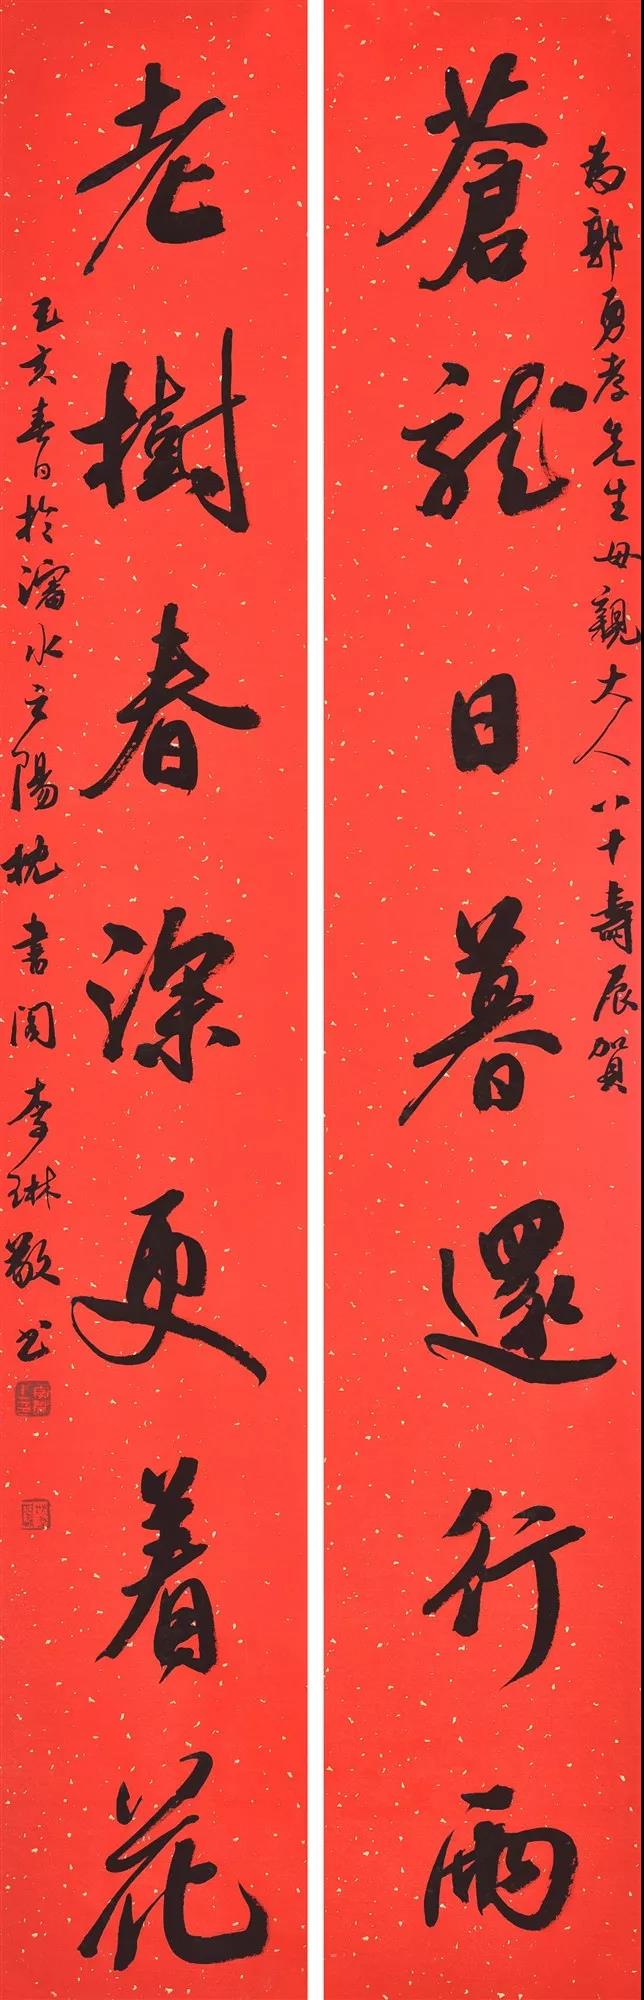 為郭勇孝先生母親大人八十壽辰賀
蒼龍日暮還行雨
老樹春深更着花
己亥春日於瀋水之陽枕書閣李琳敬书